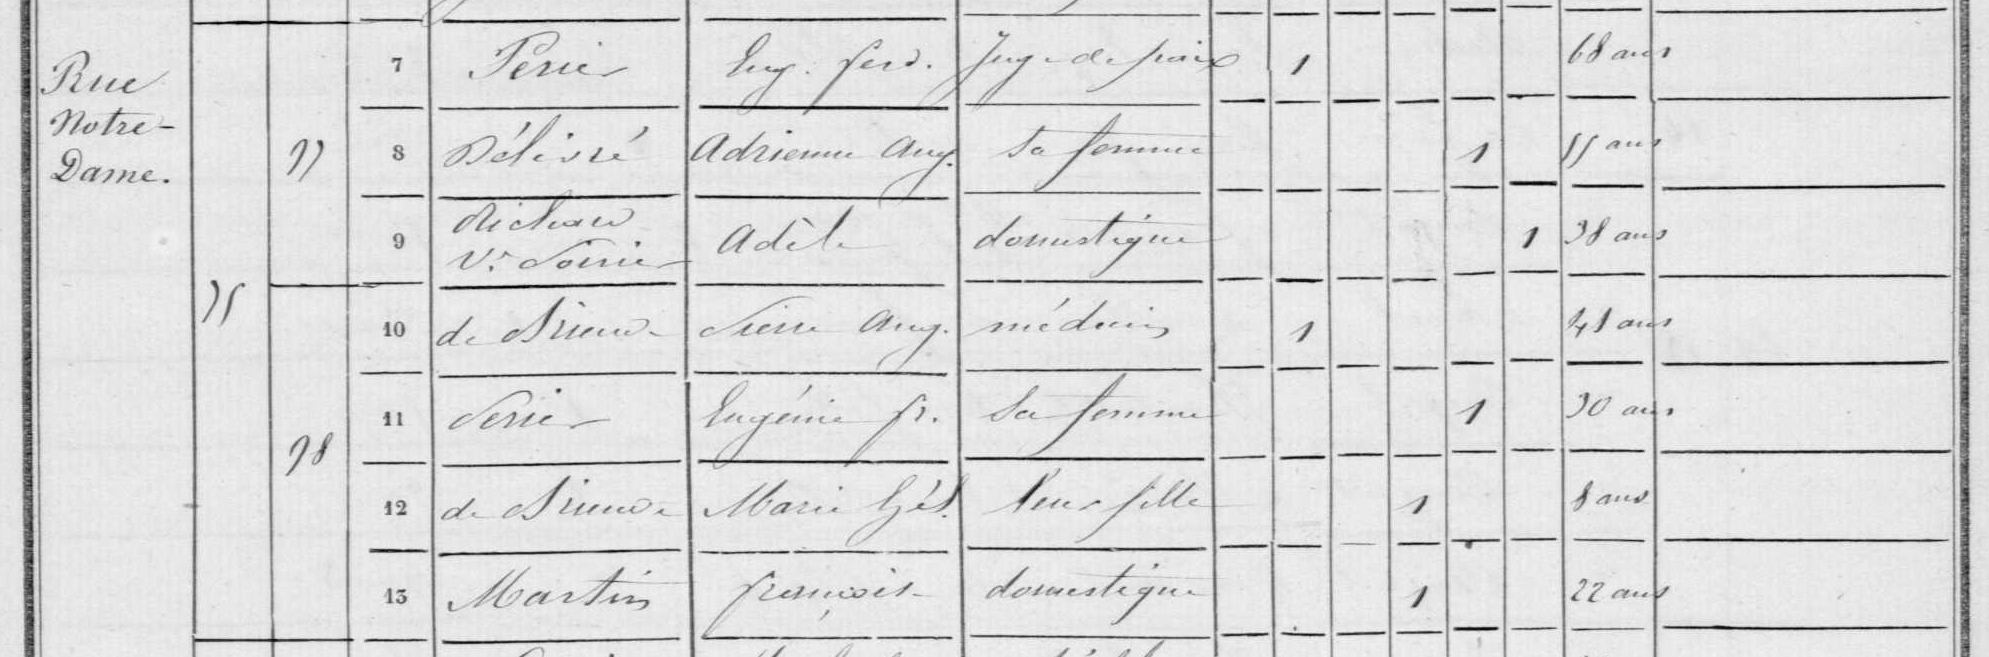 Rue
Notre-
Dame.
7 Périer Eug. ferd. Juge de paix 1 68 ans
8 Délivré Adrienne Aug. sa femme 1 55 ans
9 Richau
Ve Poirier Adèle domestique 1 38 ans
10 de Pierre Aug. médecin 1 41 ans
11 Perier Eugénie fr. sa femme 1 30 ans
12 de Marie leur fille 1 8 ans
13 Martin françois domestique 1 22 ans